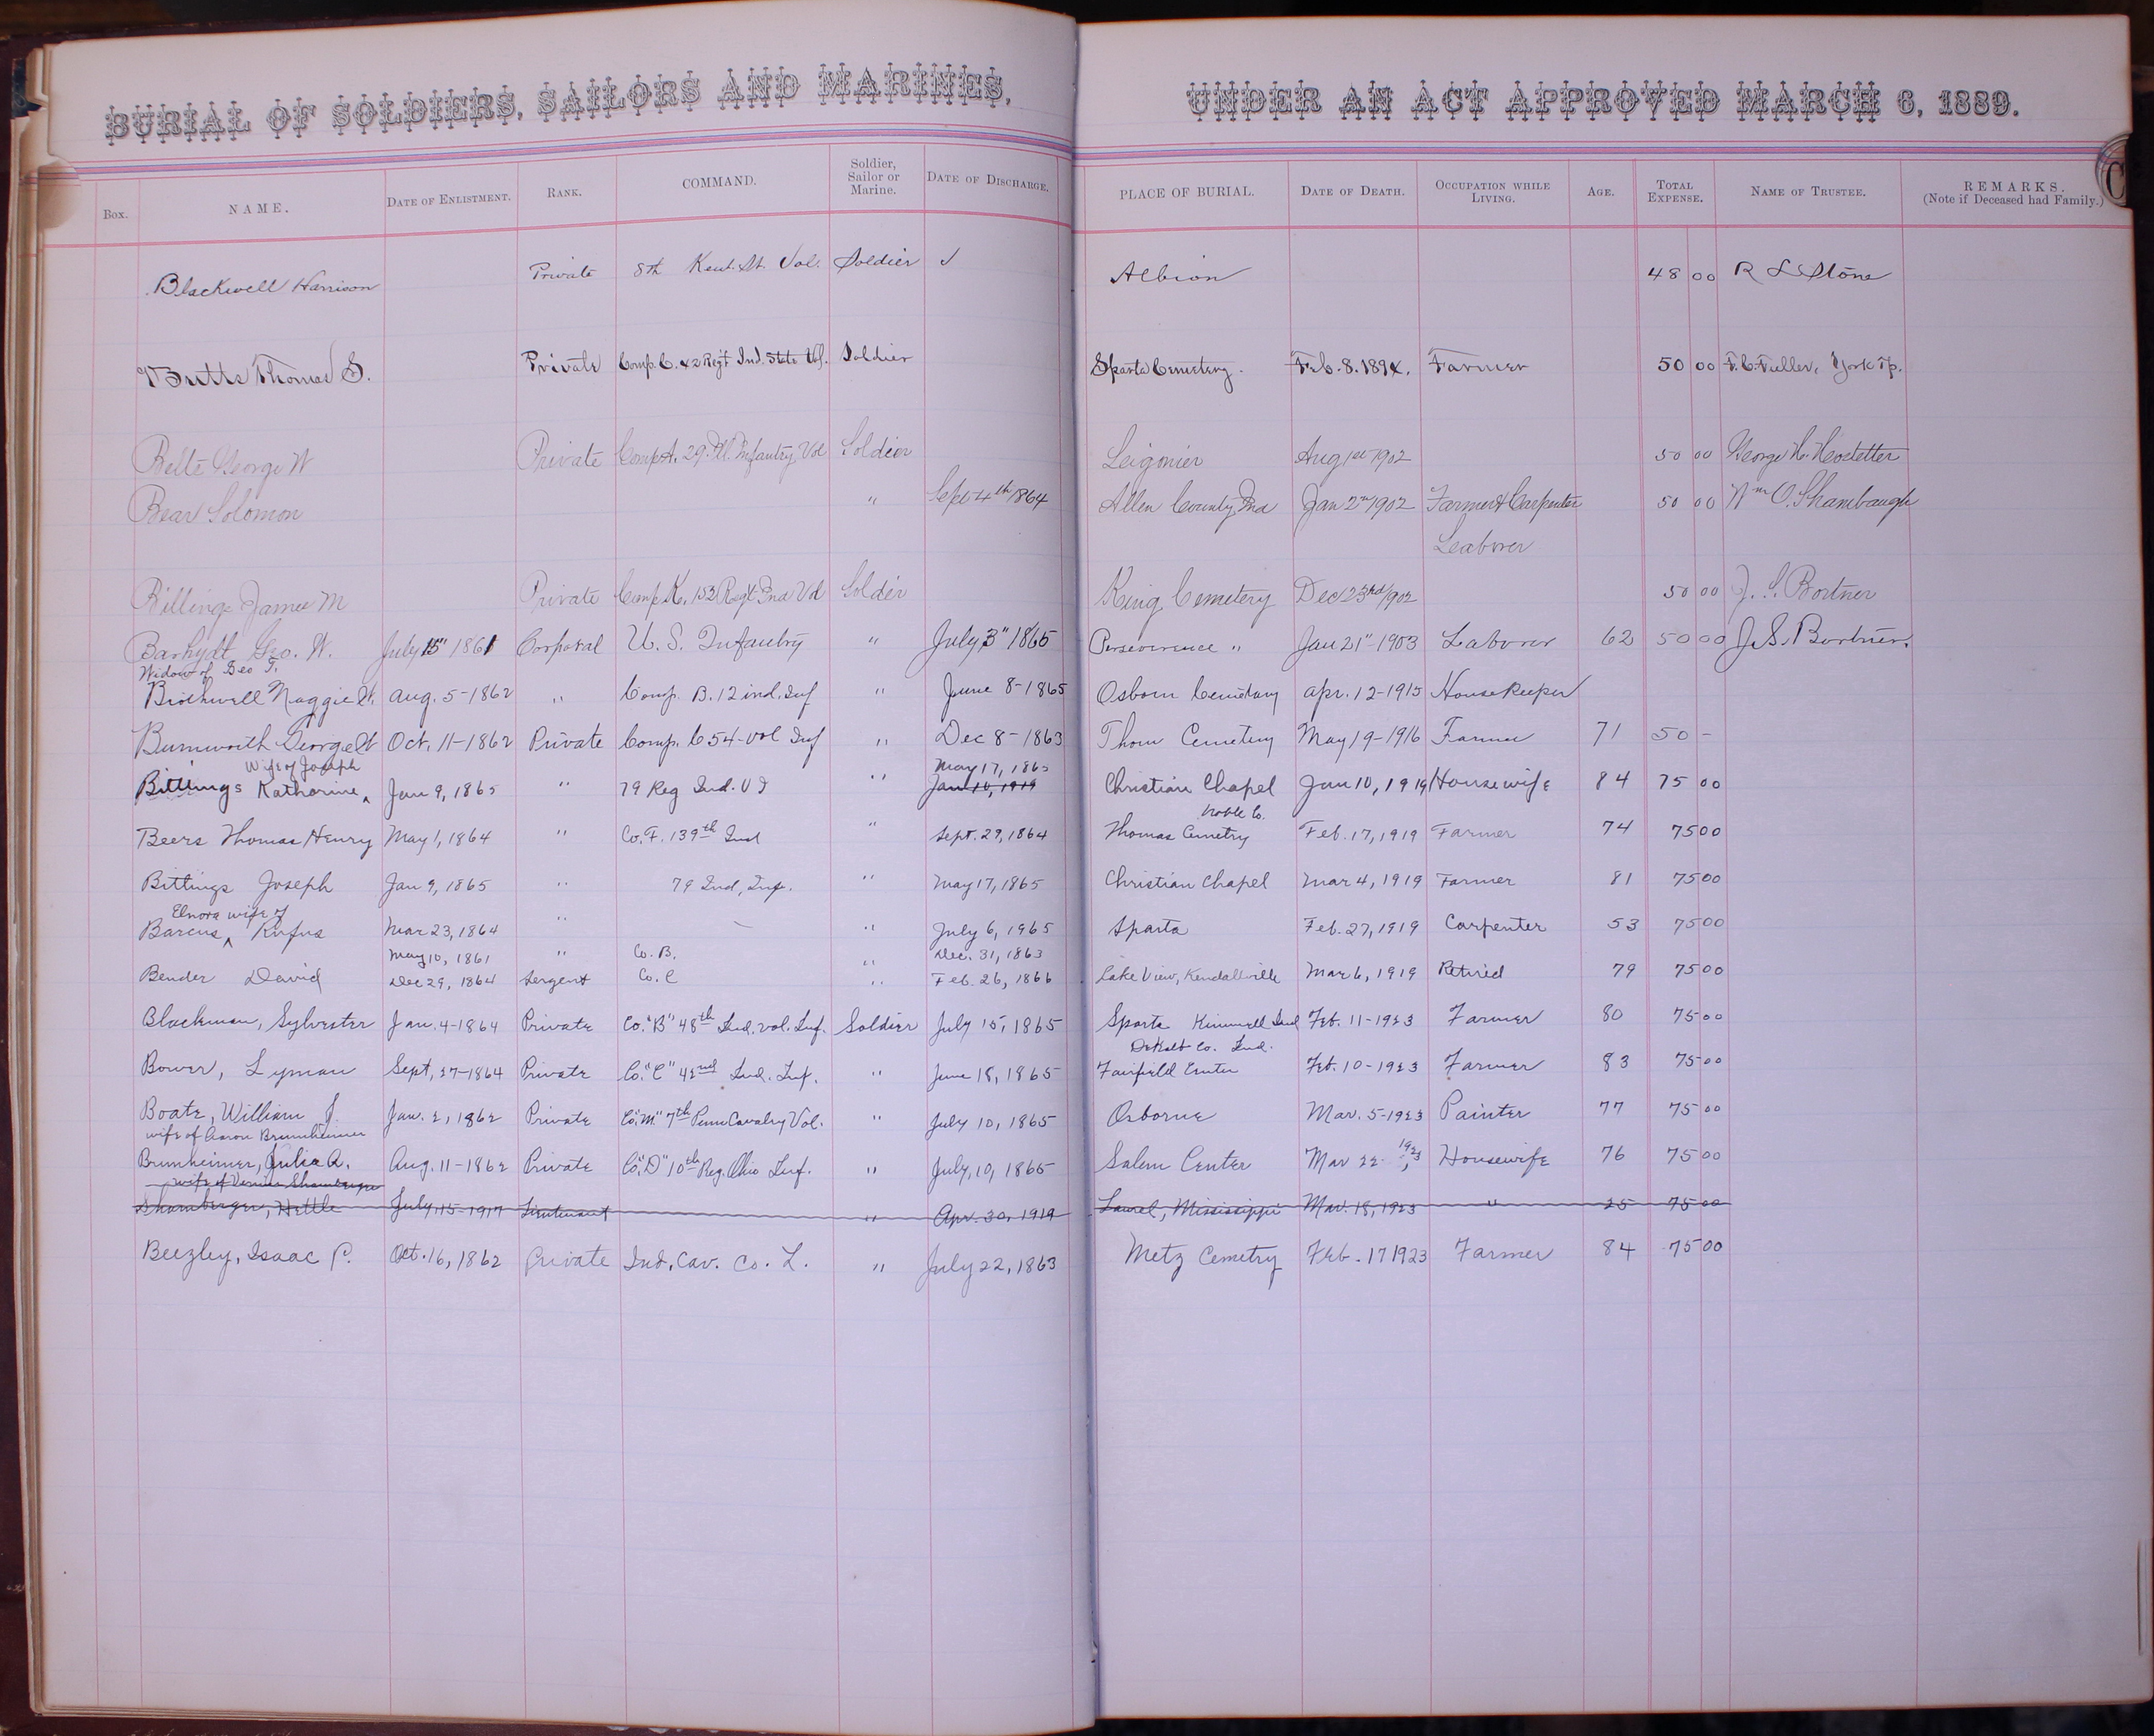 BURIAL OF SOLDIERS, SAILORS AND MARINES, UNDER AN ACT APPROVED MARCH 6, 1889.
Box. NAME. DATE OF ENLISTMENT. RANK. COMMAND. Soldier, Sailor or Marine. DATE OF DISCHARGE. PLACE OF BURIAL. DATE OF DEATH. OCCUPATION WHILE LIVING. AGE. TOTAL EXPENSE. NAME OF TRUSTEE. REMARKS. (Note if Deceased had Family.)
C
Blackwell Harrison Private 8th Kent. St. Vol. Soldier Albion 48 00 R L Stone
Butts Thomas S. Private Comp. C. 42 Regt Ind. State Vol. Soldier Sparta Cemetery. Feb. 8. 1894. Farmer 50 00 F. C. Fuller, York Tp.
Belte George W Private Comp A. 29. Ill. Infantry Vol Soldier Leigonier Aug 1st 1902 50 00 George W. Hostetter
Bear Solomon " Sept 4th 1864 Allen County Ind Jan 2nd 1902 Farmer & Carpenter 50 00 Wm O. Shambaugh
Leaborer
Billings James M Private Comp K. 152 Regt Ind Vol Soldier King Cemetery Dec 23rd 1902 50 00 J. S. Bortner
Barhydt Geo. W. July 15" 1861 Corporal U. S. Infantry " July 3" 1865 Perseverence " Jan 21" 1903 Laborer 62 50 00 J. S. Bortner.
Widow of Geo T.
Brothwell Maggie Aug. 5-1862 " Comp. B. 12 ind. Inf " June 8-1865 Osborn Cemetary Apr. 12-1915 HouseKeeper
Bumworth George W Oct. 11-1862 Private Comp. C 54-vol Inf " Dec 8-1863 Thorn Cemetery May 19-1916 Farmer 71 50 -
Wife of Joseph May 17, 1865
Bittings Katharine ^ Jan 9, 1865 " 79 Reg Ind. V I " Jan 10, 1919 Christian Chapel Jan 10, 1919 Housewife 84 75 00
Noble Co.
Beers Thomas Henry May 1, 1864 " Co. F. 139th Ind " Sept. 29, 1864 Thomas Cemetry Feb. 17, 1919 Farmer 74 75 00
Bittings Joseph Jan 9, 1865 " 79 Ind, Inf. " May 17, 1865 Christian Chapel Mar 4, 1919 Farmer 81 75 00
Elnora wife of
Barcus ^ Rufus Mar 23, 1864 " — " July 6, 1965 Sparta Feb. 27, 1919 Carpenter 53 75 00
May 10, 1861 " Co. B. " Dec. 31, 1863
Bender David Dec 29, 1864 Sergent Co. C " Feb. 26, 1866 Lake View, Kendallville Mar 6, 1919 Retired 79 75 00
Blackman, Sylvester Jan. 4-1864 Private Co. "B" 48th Ind. Vol. Inf. Soldier July 15, 1865 Sparta Kimmell Ind Feb. 11-1923 Farmer 80 75 00
DeKalb Co. Ind.
Bower, Lyman Sept. 27-1864 Private Co. "C" 42nd Ind. Inf. " June 18, 1865 Fairfield Center Feb. 10-1923 Farmer 83 75 00
Boate, William J. Jan. 2, 1862 Private Co. "M" 7th Penn Cavalry Vol. " July 10, 1865 Osborne Mar. 5-1923 Painter 77 75 00
wife of Aaron Brumheimer
Brunheimer, Julia A. Aug. 11-1862 Private Co. "D" 10th Reg. Ohio Inf. " July, 10, 1865 Salem Center Mar 22, 1923 Housewife 76 75 00
wife of Vernon Shamberger
Shamberger, Hettie July 15-1917 Lieutenant " Apr. 30, 1919 Laurel, Mississippi Mar. 18, 1923 " 25 75 00
Beezley, Isaac P. Oct. 16, 1862 Private Ind. Cav. Co. L. " July 22, 1863 Metz Cemetry Feb. 17 1923 Farmer 84 75 00